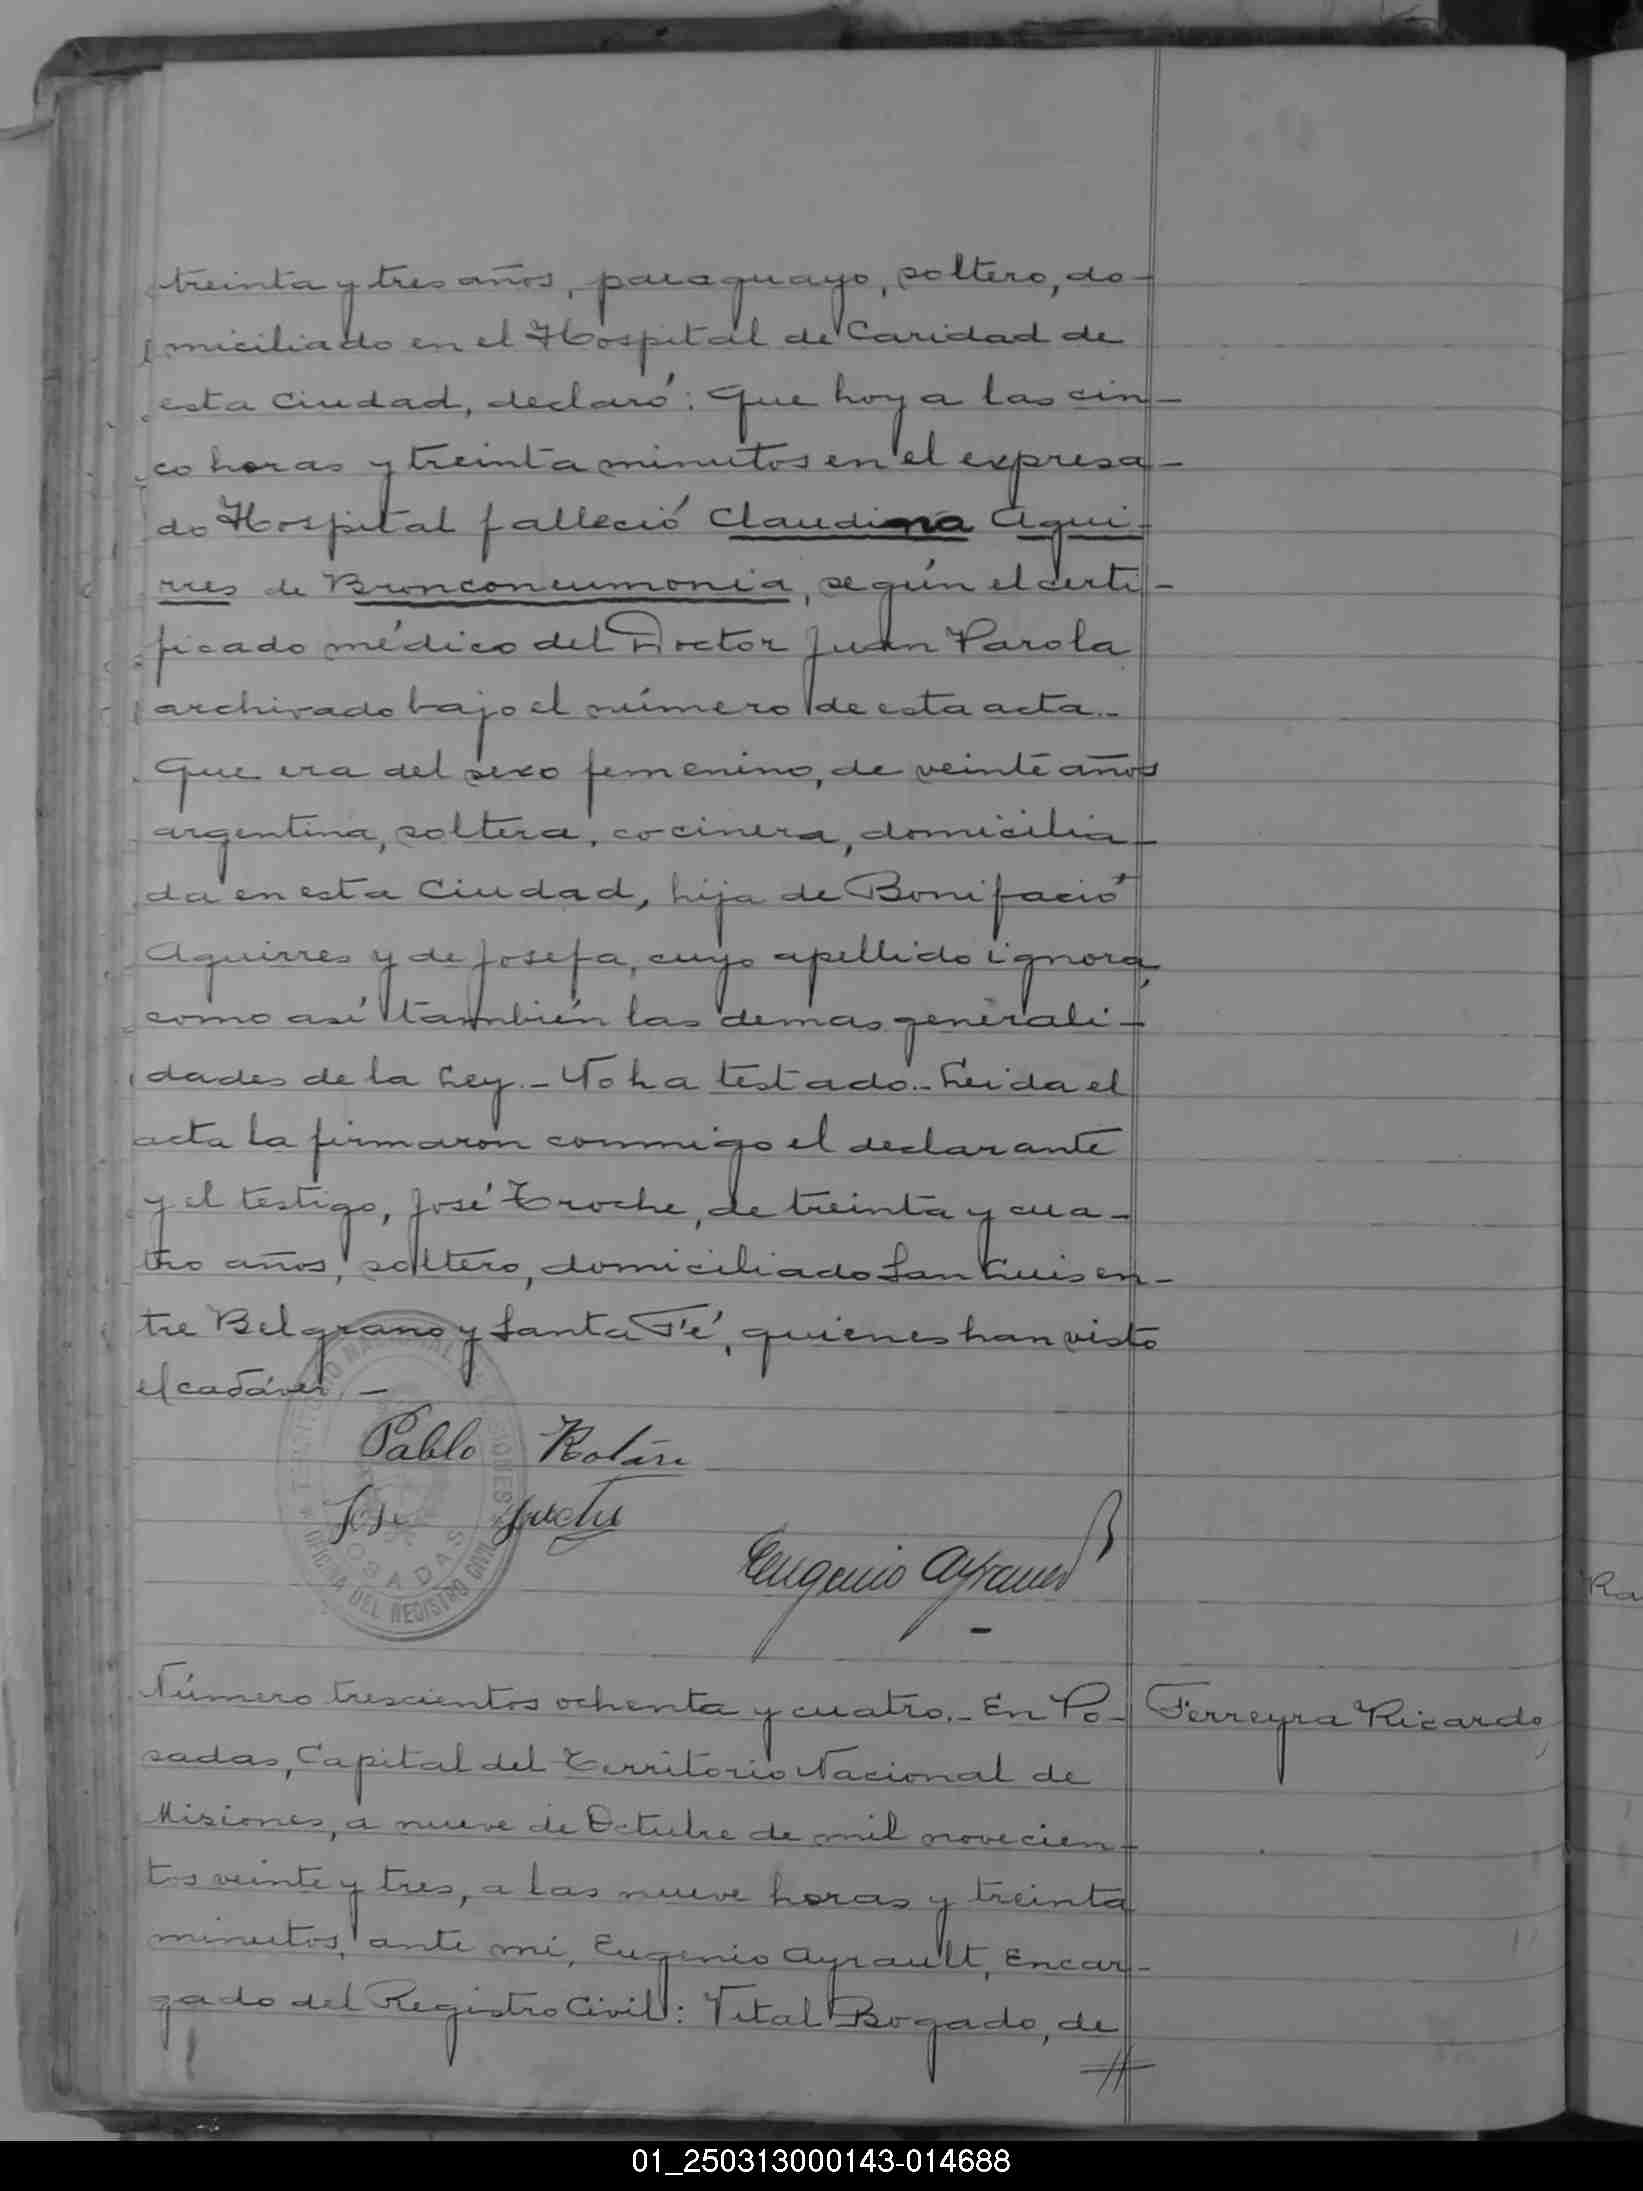 treinta y tres años, paraguayo, soltero, do-
miciliado en el Hospital de Caridad de
esta Ciudad, declaró: Que hoy a las cin-
co horas y treinta minutos en el expresa-
do Hospital falleció Claudina Agui-
rres de Bronconeumonia, según el certi-
ficado médico del Doctor Juan Parola
archivado bajo el número de esta acta.-
Que era del sexo femenino, de veinte años
argentina, soltera, cocinera, domicilia-
da en esta Ciudad, hija de Bonifació
Aguirres y de Josefa, cuyo apellido ignora,
como así también las demas generali-
dades de la Ley.- No ha testado.- Leida el
acta la firmaron conmigo el declarante
y el testigo, José Troche, de treinta y cua-
tro años, soltero, domiciliado San Luis en-
tre Belgrano y Santa Fé, quienes han visto
el cadáver.-
TERRITORIO NACIONAL DE MISIONES
POSADAS
OFICINA DEL REGISTRO CIVIL
Pablo Rolán
José
Eugenio Ayrault
Número trescientos ochenta y cuatro.- En Po-
Ferreyra Ricardo
sadas, Capital del Territorio Nacional de
Misiones, a nueve de Octubre de mil novecien-
tos veinte y tres, a las nueve horas y treinta
minutos, ante mi, Eugenio Ayrault, Encar-
gado del Registro Civil: Vital Bogado, de
//
Ra
01_250313000143-014688